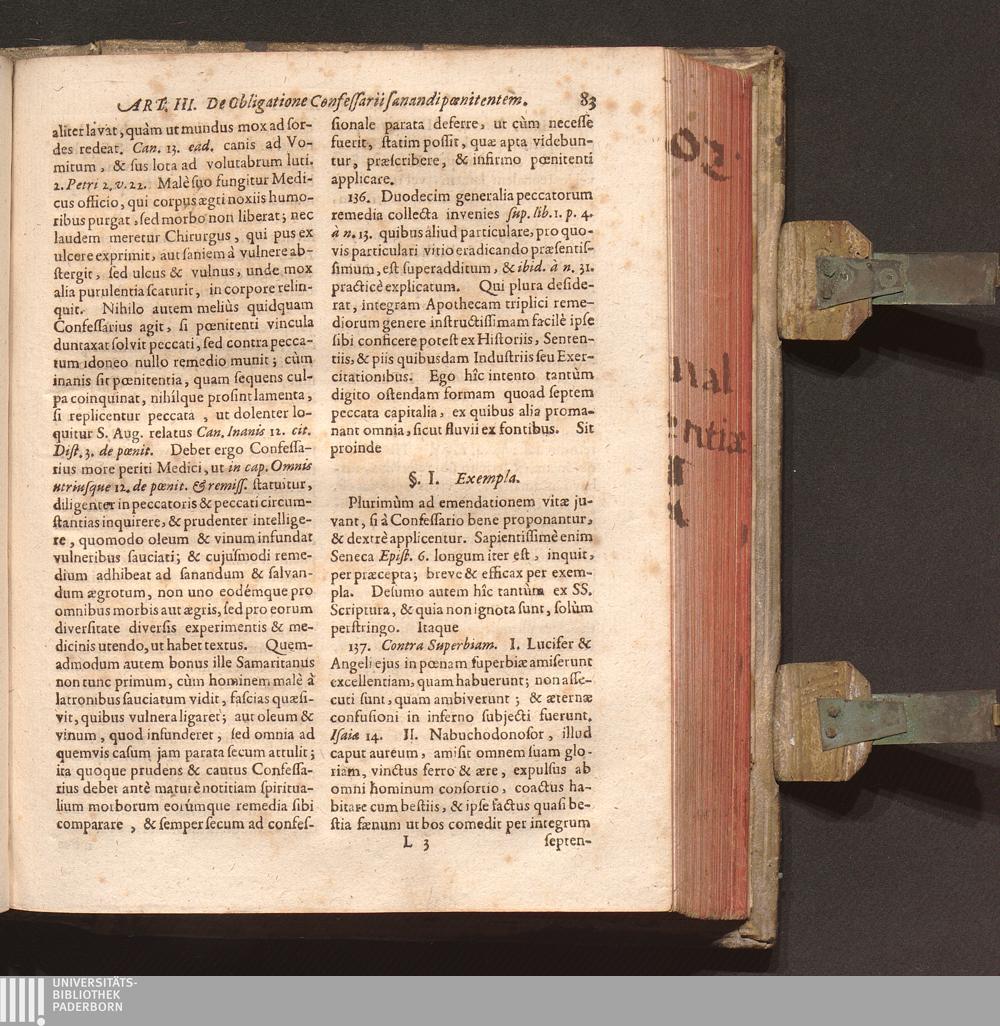 ART. III. De Obligatione Confessarii sanandi pœnitentem. 83
aliter lavat, quàm ut mundus mox ad sor-
des redeat. Can. 13. ead. canis ad Vo-
mitum, & sus lota ad volutabrum luti.
2. Petri 2. v. 22. Malè suo fungitur Medi-
cus officio, qui corpus ægri noxiis humo-
ribus purgat, sed morbo non liberat; nec
laudem meretur Chirurgus, qui pus ex
ulcere exprimit, aut saniem à vulnere ab-
stergit, sed ulcus & vulnus, unde mox
alia purulentia scaturit, in corpore relin-
quit. Nihilo autem meliùs quidquam
Confessarius agit, si pœnitenti vincula
duntaxat solvit peccati, sed contra pecca-
tum idoneo nullo remedio munit; cùm
inanis sit pœnitentia, quam sequens cul-
pa coinquinat, nihílque prosint lamenta,
si replicentur peccata, ut dolenter lo-
quitur S. Aug. relatus Can. Inanis 12. cit.
Dist. 3. de pœnit. Debet ergo Confessa-
rius more periti Medici, ut in cap. Omnis
utriusque 12. de pœnit. & remiss. statuitur,
diligenter in peccatoris & peccati circum-
stantias inquirere, & prudenter intellige-
re, quomodo oleum & vinum infundat
vulneribus sauciati; & cujusmodi reme-
dium adhibeat ad sanandum & salvan-
dum ægrotum, non uno eodémque pro
omnibus morbis aut ægris, sed pro eorum
diversitate diversis experimentis & me-
dicinis utendo, ut habet textus. Quem-
admodum autem bonus ille Samaritanus
non tunc primum, cùm hominem malè à
latronibus sauciatum vidit, fascias quæsi-
vit, quibus vulnera ligaret; aut oleum &
vinum, quod infunderet, sed omnia ad
quemvis casum jam parata secum attulit;
ita quoque prudens & cautus Confessa-
rius debet antè maturè notitiam spiritua-
lium morborum eorúmque remedia sibi
comparare, & semper secum ad confes-
sionale parata deferre, ut cùm necesse
fuerit, statim possit, quæ apta videbun-
tur, præscribere, & infirmo pœnitenti
applicare.
136. Duodecim generalia peccatorum
remedia collecta invenies sup. lib. 1. p. 4.
à n. 13. quibus aliud particulare, pro quo-
vis particulari vitio eradicando præsentis-
simum, est superadditum, & ibid. à n. 31.
practicè explicatum. Qui plura deside-
rat, integram Apothecam triplici reme-
diorum genere instructissimam facilè ipse
sibi conficere potest ex Historiis, Senten-
tiis, & piis quibusdam Industriis seu Exer-
citationibus. Ego hîc intento tantùm
digito ostendam formam quoad septem
peccata capitalia, ex quibus alia proma-
nant omnia, sicut fluvii ex fontibus. Sit
proinde
§. I. Exempla.
Plurimùm ad emendationem vitæ ju-
vant, si à Confessario bene proponantur,
& dextrè applicentur. Sapientissimè enim
Seneca Epist. 6. longum iter est, inquit,
per præcepta; breve & efficax per exem-
pla. Desumo autem hîc tantùm ex SS.
Scriptura, & quia non ignota sunt, solùm
perstringo. Itaque
137. Contra Superbiam. I. Lucifer &
Angeli ejus in pœnam superbiæ amiserunt
excellentiam, quam habuerunt; non asse-
cuti sunt, quam ambiverunt; & æternæ
confusioni in inferno subjecti fuerunt.
Isaiæ 14. II. Nabuchodonosor, illud
caput aureum, amisit omnem suam glo-
riam, vinctus ferro & ære, expulsus ab
omni hominum consortio, coactus ha-
bitare cum bestiis, & ipse factus quasi be-
stia fænum ut bos comedit per integrum
L 3 septen-
nal
entiæ
UNIVERSITÄTS-
BIBLIOTHEK
PADERBORN